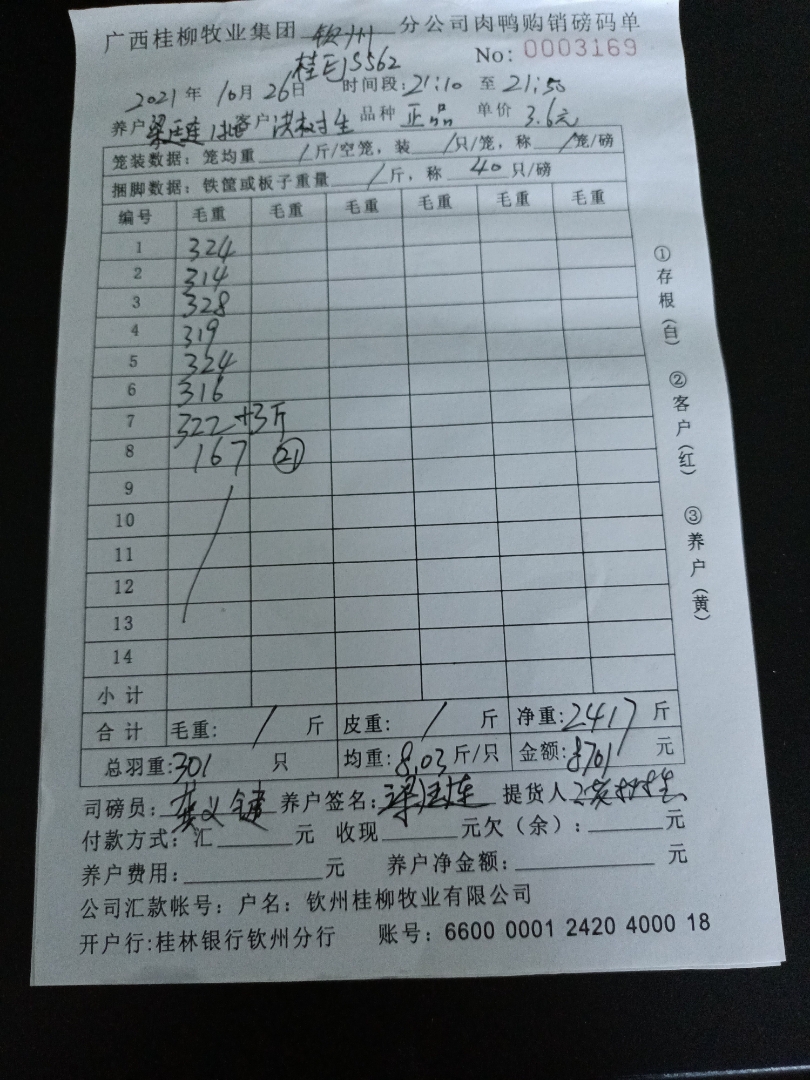 广西桂柳牧业集团 钦州 分公司肉鸭购销磅码单
桂EJS562 No: 0003169
2021年 10月 26日 时间段:21:10 至 21:50
养户 客户 洪树生 品种 正品 单价 3.6元
笼装数据:笼均重 / 斤/空笼,装 / 只/笼,称 / 笼/磅
捆脚数据:铁筐或板子重量 / 斤,称 40 只/磅
编号 毛重 毛重 毛重 毛重 毛重 毛重
1 324
2 314
3 328
4 319
5 324
6 316
7 322 +3斤
8 167 ㉑
9
10
11
12
13
14
小计
合计 毛重: / 斤 皮重: / 斤 净重:2417 斤
总羽重:301 只 均重:8.03 斤/只 金额:8701 元
司磅员: 养户签名: 提货人
付款方式:汇 元 收现 元欠(余): 元
养户费用: 元 养户净金额: 元
公司汇款帐号:户名:钦州桂柳牧业有限公司
开户行:桂林银行钦州分行 账号:6600 0001 2420 4000 18
①存根(白)
②客户(红)
③养户(黄)